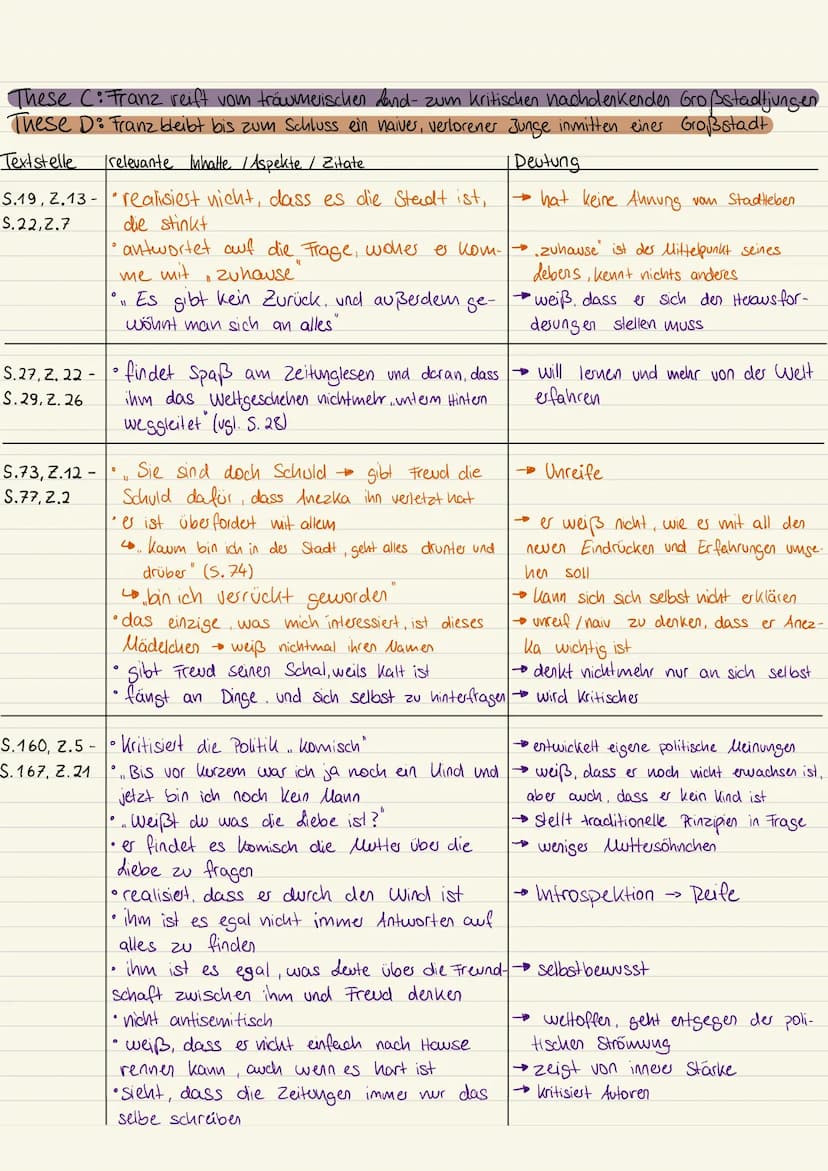 These C: Franz reift vom träumerischen Land- zum kritischen nachdenkenden Großstadtjungen
These D: Franz bleibt bis zum Schluss ein naiver, verlorener Junge inmitten einer Großstadt
Textstelle relevante Inhalte / Aspekte / Zitate Deutung
S.19, Z.13 - • realisiert nicht, dass es die Stadt ist, → hat keine Ahnung vom Stadtleben
S.22, Z.7 die stinkt
• antwortet auf die Frage, woher er kom- → "zuhause" ist der Mittelpunkt seines
me mit "zuhause" Lebens, kennt nichts anderes
• "Es gibt kein Zurück, und außerdem ge- → weiß, dass er sich den Herausfor-
wöhnt man sich an alles" derungen stellen muss
S.27, Z.22 - • findet Spaß am Zeitunglesen und daran, dass → will lernen und mehr von der Welt
S.29, Z.26 ihm das Weltgeschehen nichtmehr "unterm Hintern erfahren
weggleitet" (vgl. S. 28)
S.73, Z.12 - • "Sie sind doch Schuld → gibt Freud die → Unreife
S.77, Z.2 Schuld dafür, dass Anezka ihn verletzt hat
• er ist überfordert mit allem → er weiß nicht, wie es mit all den
↳ "Kaum bin ich in der Stadt, geht alles drunter und neuen Eindrücken und Erfahrungen umge-
drüber" (S.74) hen soll
↳ "bin ich verrückt geworden" → kann sich sich selbst nicht erklären
• das einzige, was mich interessiert, ist dieses → unreif / naiv zu denken, dass er Anez-
Mädelchen → weiß nichtmal ihren Namen ka wichtig ist
• gibt Freud seinen Schal, weils kalt ist → denkt nichtmehr nur an sich selbst
• fängt an Dinge und sich selbst zu hinterfragen → wird kritischer
S.160, Z.5 - • kritisiert die Politik "komisch" → entwickelt eigene politische Meinungen
S.167, Z.21 • "Bis vor kurzem war ich ja noch ein Kind und → weiß, dass er noch nicht erwachsen ist,
jetzt bin ich noch kein Mann aber auch, dass er kein Kind ist
• "Weißt du was die Liebe ist?" → stellt traditionelle Prinzipien in Frage
• er findet es komisch die Mutter über die → weniger Muttersöhnchen
Liebe zu fragen
• realisiert, dass er durch den Wind ist → Introspektion → Reife
• ihm ist es egal nicht immer Antworten auf
alles zu finden
• ihm ist es egal, was Leute über die Freund- → selbstbewusst
schaft zwischen ihm und Freud denken
• nicht antisemitisch → weltoffen, geht entgegen der poli-
• weiß, dass er nicht einfach nach Hause tischen Strömung
rennen kann, auch wenn es hart ist → zeigt von innerer Stärke
• sieht, dass die Zeitungen immer nur das → kritisiert Autoren
selbe schreiben